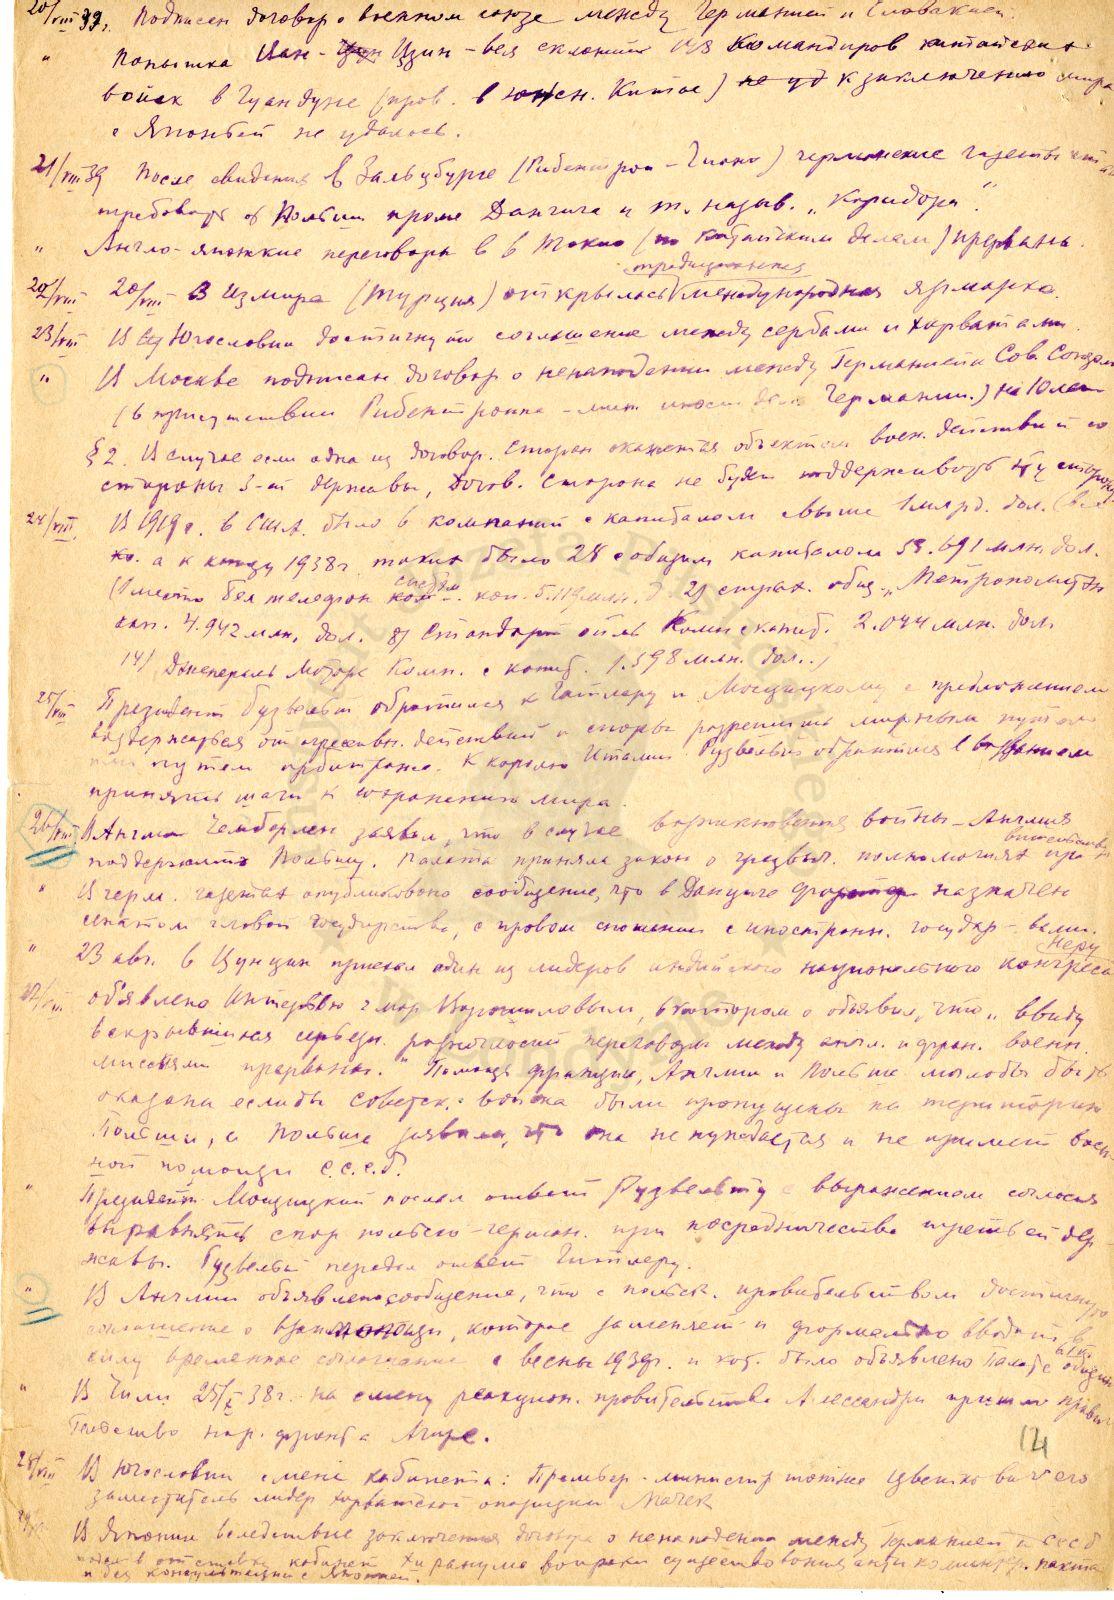 20/VIII 39. Подписан договор о военном союзе между Германией и Словакией.
" Попытка Ван-Цзин-вея склонить командиров китайских
войск в Гуандуне (пров. в южн. Китае) к заключению мира
с Японией не удалось.
21/VIII 39 После свидания в Зальцбурге (Рибентроп – Чиано) германские газеты
требовать от Польши кроме Данцига и т. назыв. „Коридора".
" Англо-японские переговоры в Токио (по китайским делам) прерваны.
традиционная
20/VIII 20/VIII – В Измире (Турция) открылась международная ярмарка.
23/VIII В Югославии достигнуто соглашение между сербами и хорватами.
" В Москве подписан договор о ненападении между Германией и Сов. Союзом
(в присутствии Рибентроппа – мин. иност. дел Германии.) на 10 лет
§ 2. В случае если одна из договор. сторон окажется объектом воен. действий со
стороны 3-ей державы, догов. сторона не будет поддерживать эту сторону
24/VIII. В 1919 г. в США. было 6 компаний с капиталом свыше 1 млрд. дол.
а к концу 1938 г. таких было 28 с общим капиталом 53.691 млн. дол.
Бел телефон кап. 5.119 млн. д. 2) страх. общ. „Метрополитэн
кап. 4.942 млн. дол. 8) Стандарт ойль Комп. с капит. 2.044 млн. дол.
14) Дженераль Моторс Комп. с капит. 1.598 млн. дол.
25/VIII Президент Рузвельт обратился к Гитлеру и Мосцицкому с предложением
воздержаться от агрессивн. действий и споры разрешить мирным путем
или путем арбитража. К королю Италии Рузвельт обратился с воззванием
принять шаги к сохранению мира.
26/VIII В Англии Чемберлен заявил, что в случае возникновения войны – Англия
поддержит Польшу. Палата приняла закон о чрезвыч. полномочиях правительства
" В герм. газетах опубликовано сообщение, что в Данциге назначен
сенатом главой государства, с правом сношений с иностранн. государ-вами.
Неру
" 23 авг. в Чунцин приехал один из лидеров индийского национального конгресса
27/VIII объявлено интервью с мар. Ворошиловым, в котором о объявил, что „ввиду
вскрывшихся серьезн. разногласий переговоры между англ. и фран. воен.
миссиями прерваны." Помощь Франции, Англии и Польше могла бы быть
оказана если бы советск. войска были пропущены на территорию
Польши, а Польша заявила, что она не нуждается и не примет воен-
ной помощи С.С.С.Р.
" Президент Мосцицкий послал ответ Рузвельту с выражением согласия
выравнять спор польско-герман. при посредничестве третьей дер-
жавы. Рузвельт передал ответ Гитлеру.
" В Англии объявлено сообщение, что с польск. правительством достигнуто
соглашение о взаимопомощи, которое заменяет и формально вводит в
силу временное соглашение с весны 1939г. и кот. было объявлено Палате общин
" В Чили 25/X 38 г. на смену реакцион. правительства Алессандри пришло правит
тельство нар. фронта Агире.
121
28/VIII В Югославии смена кабинета: Премьер-министр тотже Цветкович его
заместитель лидер хорватской опозиции Мачек
В Японии вследствие заключения договора о ненападении между Германией и СССР
подал в отставку кабинет Хиранума вопреки существования антикоминтер. пакта
и без консультации с Японией.